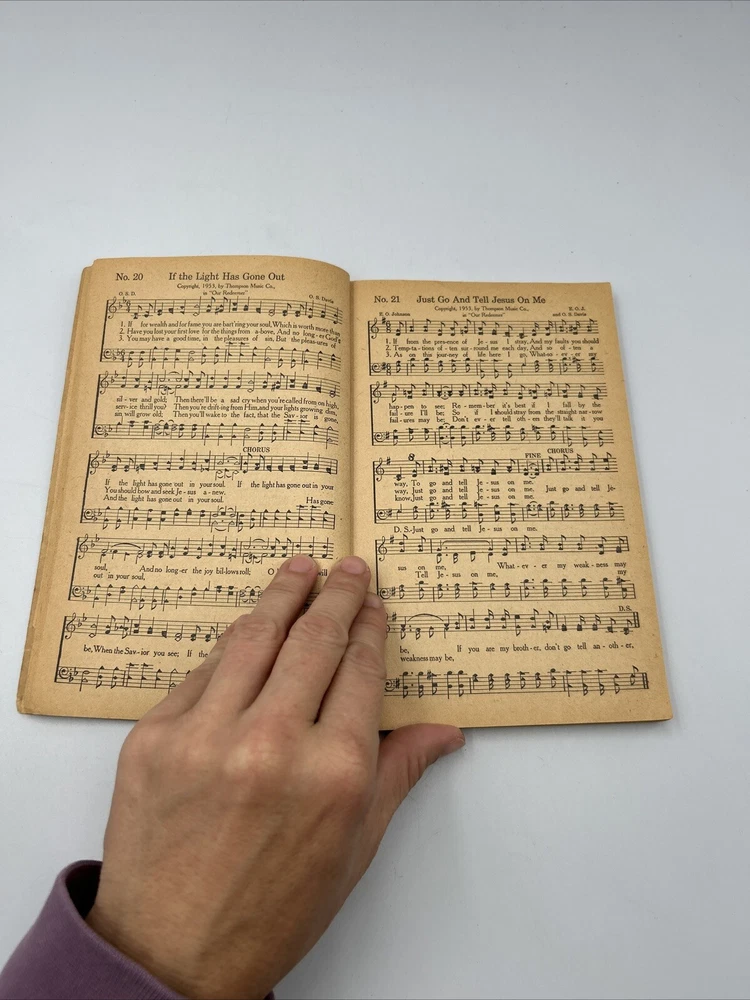 No. 20 If the Light Has Gone Out
Copyright, 1953, by Thompson Music Co.,
in "Our Redeemer"
O. B. D. O. B. Davis
1. If for wealth and for fame you are bart'ring your soul, Which is worth more than
2. Have you lost your first love for the things from a-bove, And no long-er God's
3. You may have a good time, in the pleasures of sin, But the pleas-ures of
sil-ver and gold; Then there'll be a sad cry when you're called from on high,
serv-ice thrill you? Then you're drift-ing from Him, and your lights growing dim,
sin will grow old; Then you'll wake to the fact, that the Sav-ior is gone,
CHORUS
If the light has gone out in your soul. If the light has gone out in your
You should bow and seek Je-sus a-new.
And the light has gone out in your soul. Has gone
soul, And no long-er the joy bil-lows roll; O will
out in your soul,
be, When the Sav-ior you see; If the
No. 21 Just Go And Tell Jesus On Me
Copyright, 1953, by Thompson Music Co.,
in "Our Redeemer"
E. O. Johnson E. O. J.
and O. B. Davis
1. If from the pres-ence of Je-sus I stray, And my faults you should
2. Temp-ta-tions of-ten sur-round me each day, And so of-ten a
3. As on this jour-ney of life here I go, What-so-ev-er my
hap-pen to see; Re-mem-ber it's best if I fall by the
fail-ure I'll be; So if I should stray from the straight nar-row
fail-ures may be; Don't ev-er tell oth-ers they'll talk it you
FINE CHORUS
way, To go and tell Je-sus on me.
way, Just go and tell Je-sus on me. Just go and tell Je-
know, Just go and tell Je-sus on me.
D. S.-Just go and tell Je-sus on me.
sus on me, What-ev-er my weak-ness may
Tell Je-sus on me, my
D.S.
be, If you are my broth-er, don't go tell an-oth-er,
weakness may be,